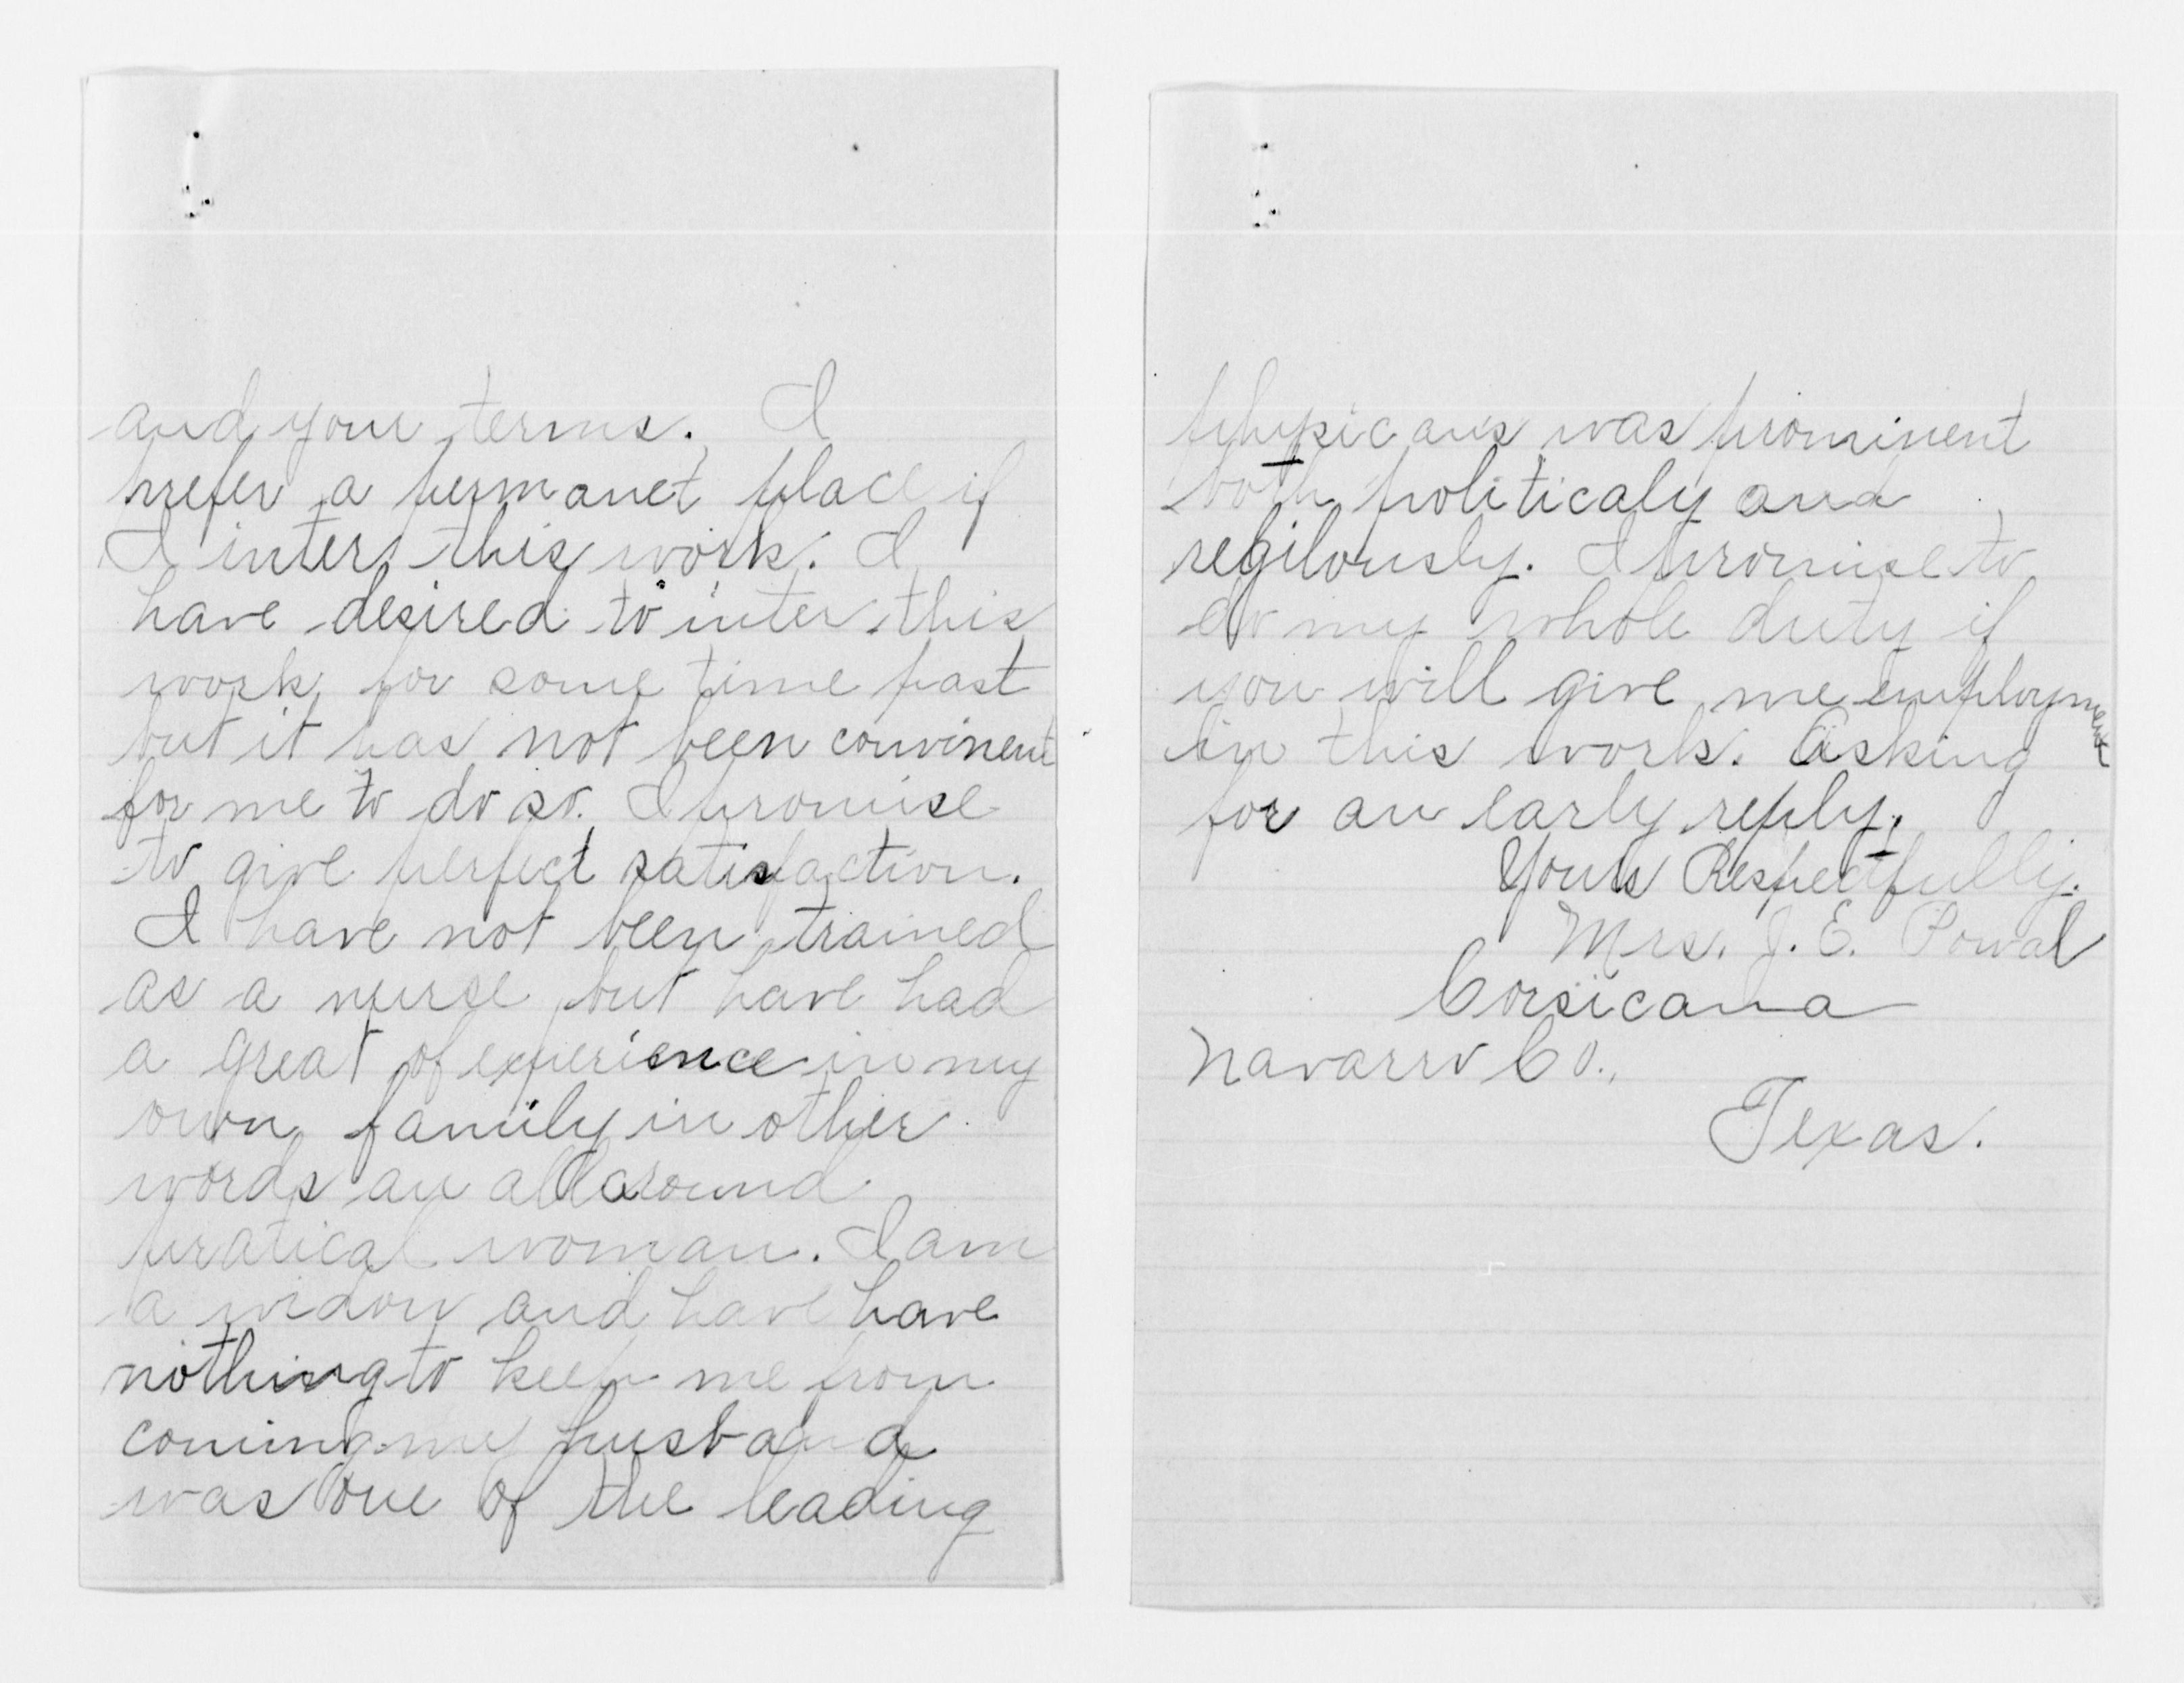 and your terms. I
prefer a permanet place if
I inter this work. I
have desired to inter this
work for some time past
but it has not been convinent
for me to do so. I promise
to give perfect satisfaction.
I have not been trained
as a nurse but have had
a great of experience in my
own family in other
words an all around
pratical woman. I am
a widow and have have
nothing to keep me from
coming my husband
was one of the leading
physicans was prominent
both politicaly and
regilously. I promise to
do my whole duty if
you will give me employment
in this work. Asking
for an early reply.
Yours Respectfully.
Mrs. J. E. Powal
Corsicana
Navarro Co.,
Texas.